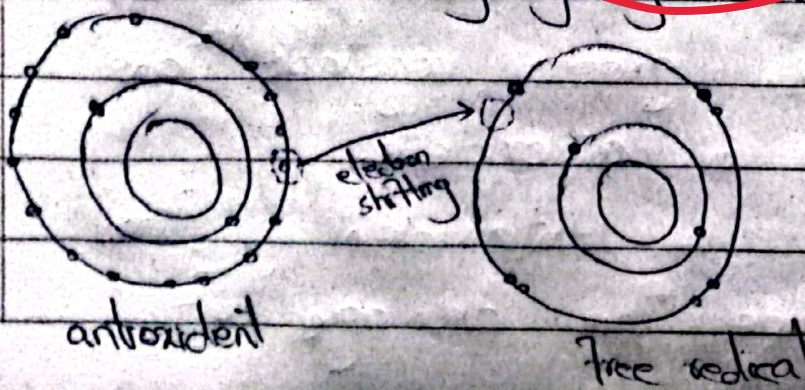 electron
shifting
antioxident
Free redical